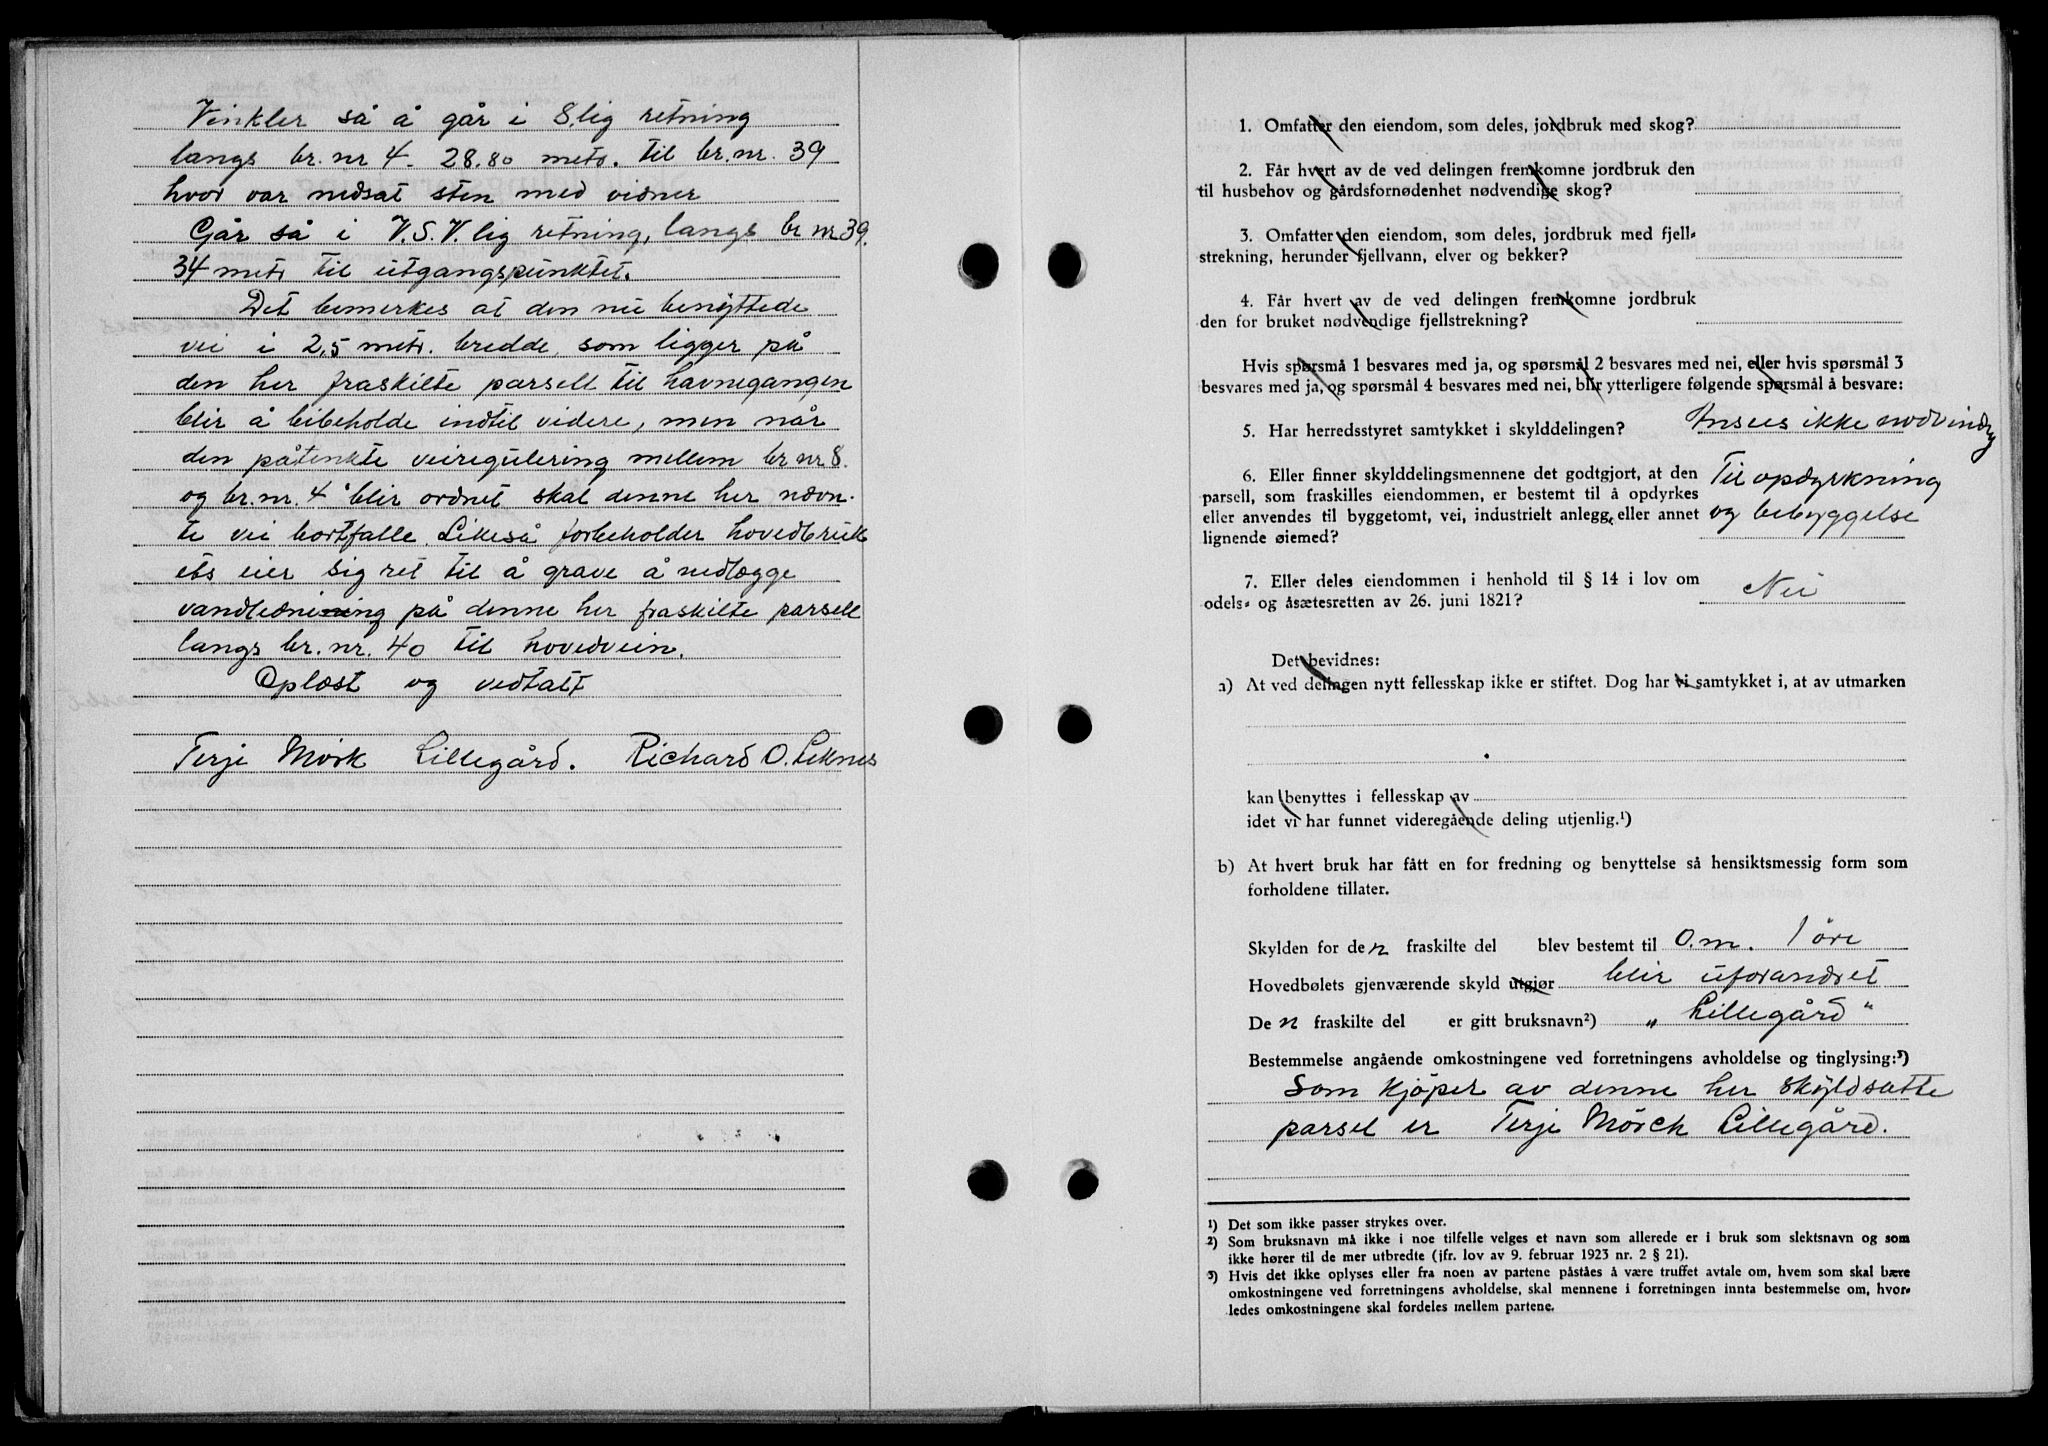 Vinkler så å går i S.lig retning
langs br. nr 4 - 28.80 metr. til br. nr. 39
hvor var nedsat sten med vidner
Går så i V.S.V.lig retning, langs br nr 39.
34 metr til utgangspunktet.
Det bemerkes at den nu benyttede
vei i 2,5 metr. bredde, som ligger på
den her fraskilte parsell til havnegangen
blir å bibeholde indtil videre, men når
den påtenkte veiregulering mellem br nr 8.
og br. nr. 4 blir ordnet skal denne her nævn-
te vei bortfalle. Likeså forbeholder hovedbruk
ets eier sig ret til å grave å nedlægge
vandledning på denne her fraskilte parsell
langs br. nr. 40 til hovedvein.
Oplæst og vedtatt
Terje Mörk Lillegård. Richard O. Leknes
1. Omfatter den eiendom, som deles, jordbruk med skog?
2. Får hvert av de ved delingen fremkomne jordbruk den
til husbehov og gårdsfornødenhet nødvendige skog?
3. Omfatter den eiendom, som deles, jordbruk med fjell-
strekning, herunder fjellvann, elver og bekker?
4. Får hvert av de ved delingen fremkomne jordbruk
den for bruket nødvendige fjellstrekning?
Hvis spørsmå 1 besvares med ja, og spørsmål 2 besvares med nei, eller hvis spørsmål 3
besvares med ja, og spørsmål 4 besvares med nei, blir ytterligere følgende spørsmål å besvare:
5. Har herredsstyret samtykket i skylddelingen? Ansees ikke nødvendig
6. Eller finner skylddelingsmennene det godtgjort, at den
parsell, som fraskilles eiendommen, er bestemt til å opdyrkes
eller anvendes til byggetomt, vei, industrielt anlegg, eller annet
lignende øiemed?
Til opdyrkning
og bebyggelse
7. Eller deles eiendommen i henhold til § 14 i lov om
odels- og åsætesretten av 26. juni 1821? Nei
Det bevidnes:
a) At ved delingen nytt fellesskap ikke er stiftet. Dog har vi samtykket i, at av utmarken
kan benyttes i fellesskap av
idet vi har funnet videregående deling utjenlig.¹)
b) At hvert bruk har fått en for fredning og benyttelse så hensiktsmessig form som
forholdene tillater.
Skylden for den fraskilte del blev bestemt til 0.m. 1 öre
Hovedbølets gjenværende skyld utgjør blir uforandret
Den fraskilte del er gitt bruksnavn²) „Lillegård“
Bestemmelse angående omkostningene ved forretningens avholdelse og tinglysing:³)
Som kjöper av denne her skyldsatte
parsel er Terje Mörch Lillegård.
¹) Det som ikke passer strykes over.
²) Som bruksnavn må ikke i noe tilfelle velges et navn som allerede er i bruk som slektsnavn og som
ikke hører til de mer utbredte (jfr. lov av 9. februar 1923 nr. 2 § 21).
³) Hvis det ikke oplyses eller fra noen av partene påståes å være truffet avtale om, hvem som skal bære
omkostningene ved forretningens avholdelse, skal mennene i forretningen innta bestemmelse om, hvor-
ledes omkostningene skal fordeles mellem partene.